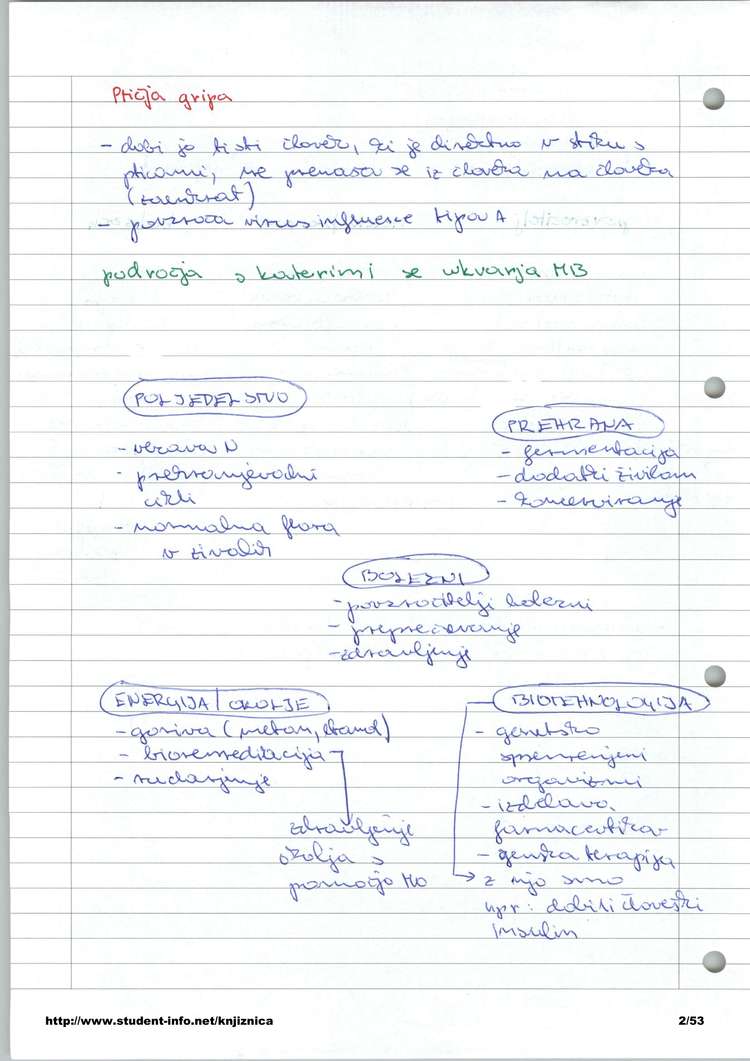 Ptičja gripa
- dobi jo tisti človek, ki je direktno v stiku s
pticami, ne prenaša se iz človeka na človeka
(zaenkrat)
- povzroča virus influence tipa A
področja s katerimi se ukvarja MB
POLJEDELSTVO
- vezava N
- prehranjevodni
cikli
- normalna flora
v živalih
PREHRANA
- fermentacija
- dodatki živilom
- konzerviranje
BOLEZNI
- povzročitelji bolezni
- preprečevanje
- zdravljenje
ENERGIJA/OKOLJE
- goriva (metan, etanol)
- bioremediacija
- rudarjenje
zdravljenje
okolja s
pomočjo MO
BIOTEHNOLOGIJA
- genetsko
spremenjeni
organizmi
- izdelava
farmacevtika
- genska terapija
z njo smo
npr: dobili človeški
insulin
http://www.student-info.net/knjiznica
2/53